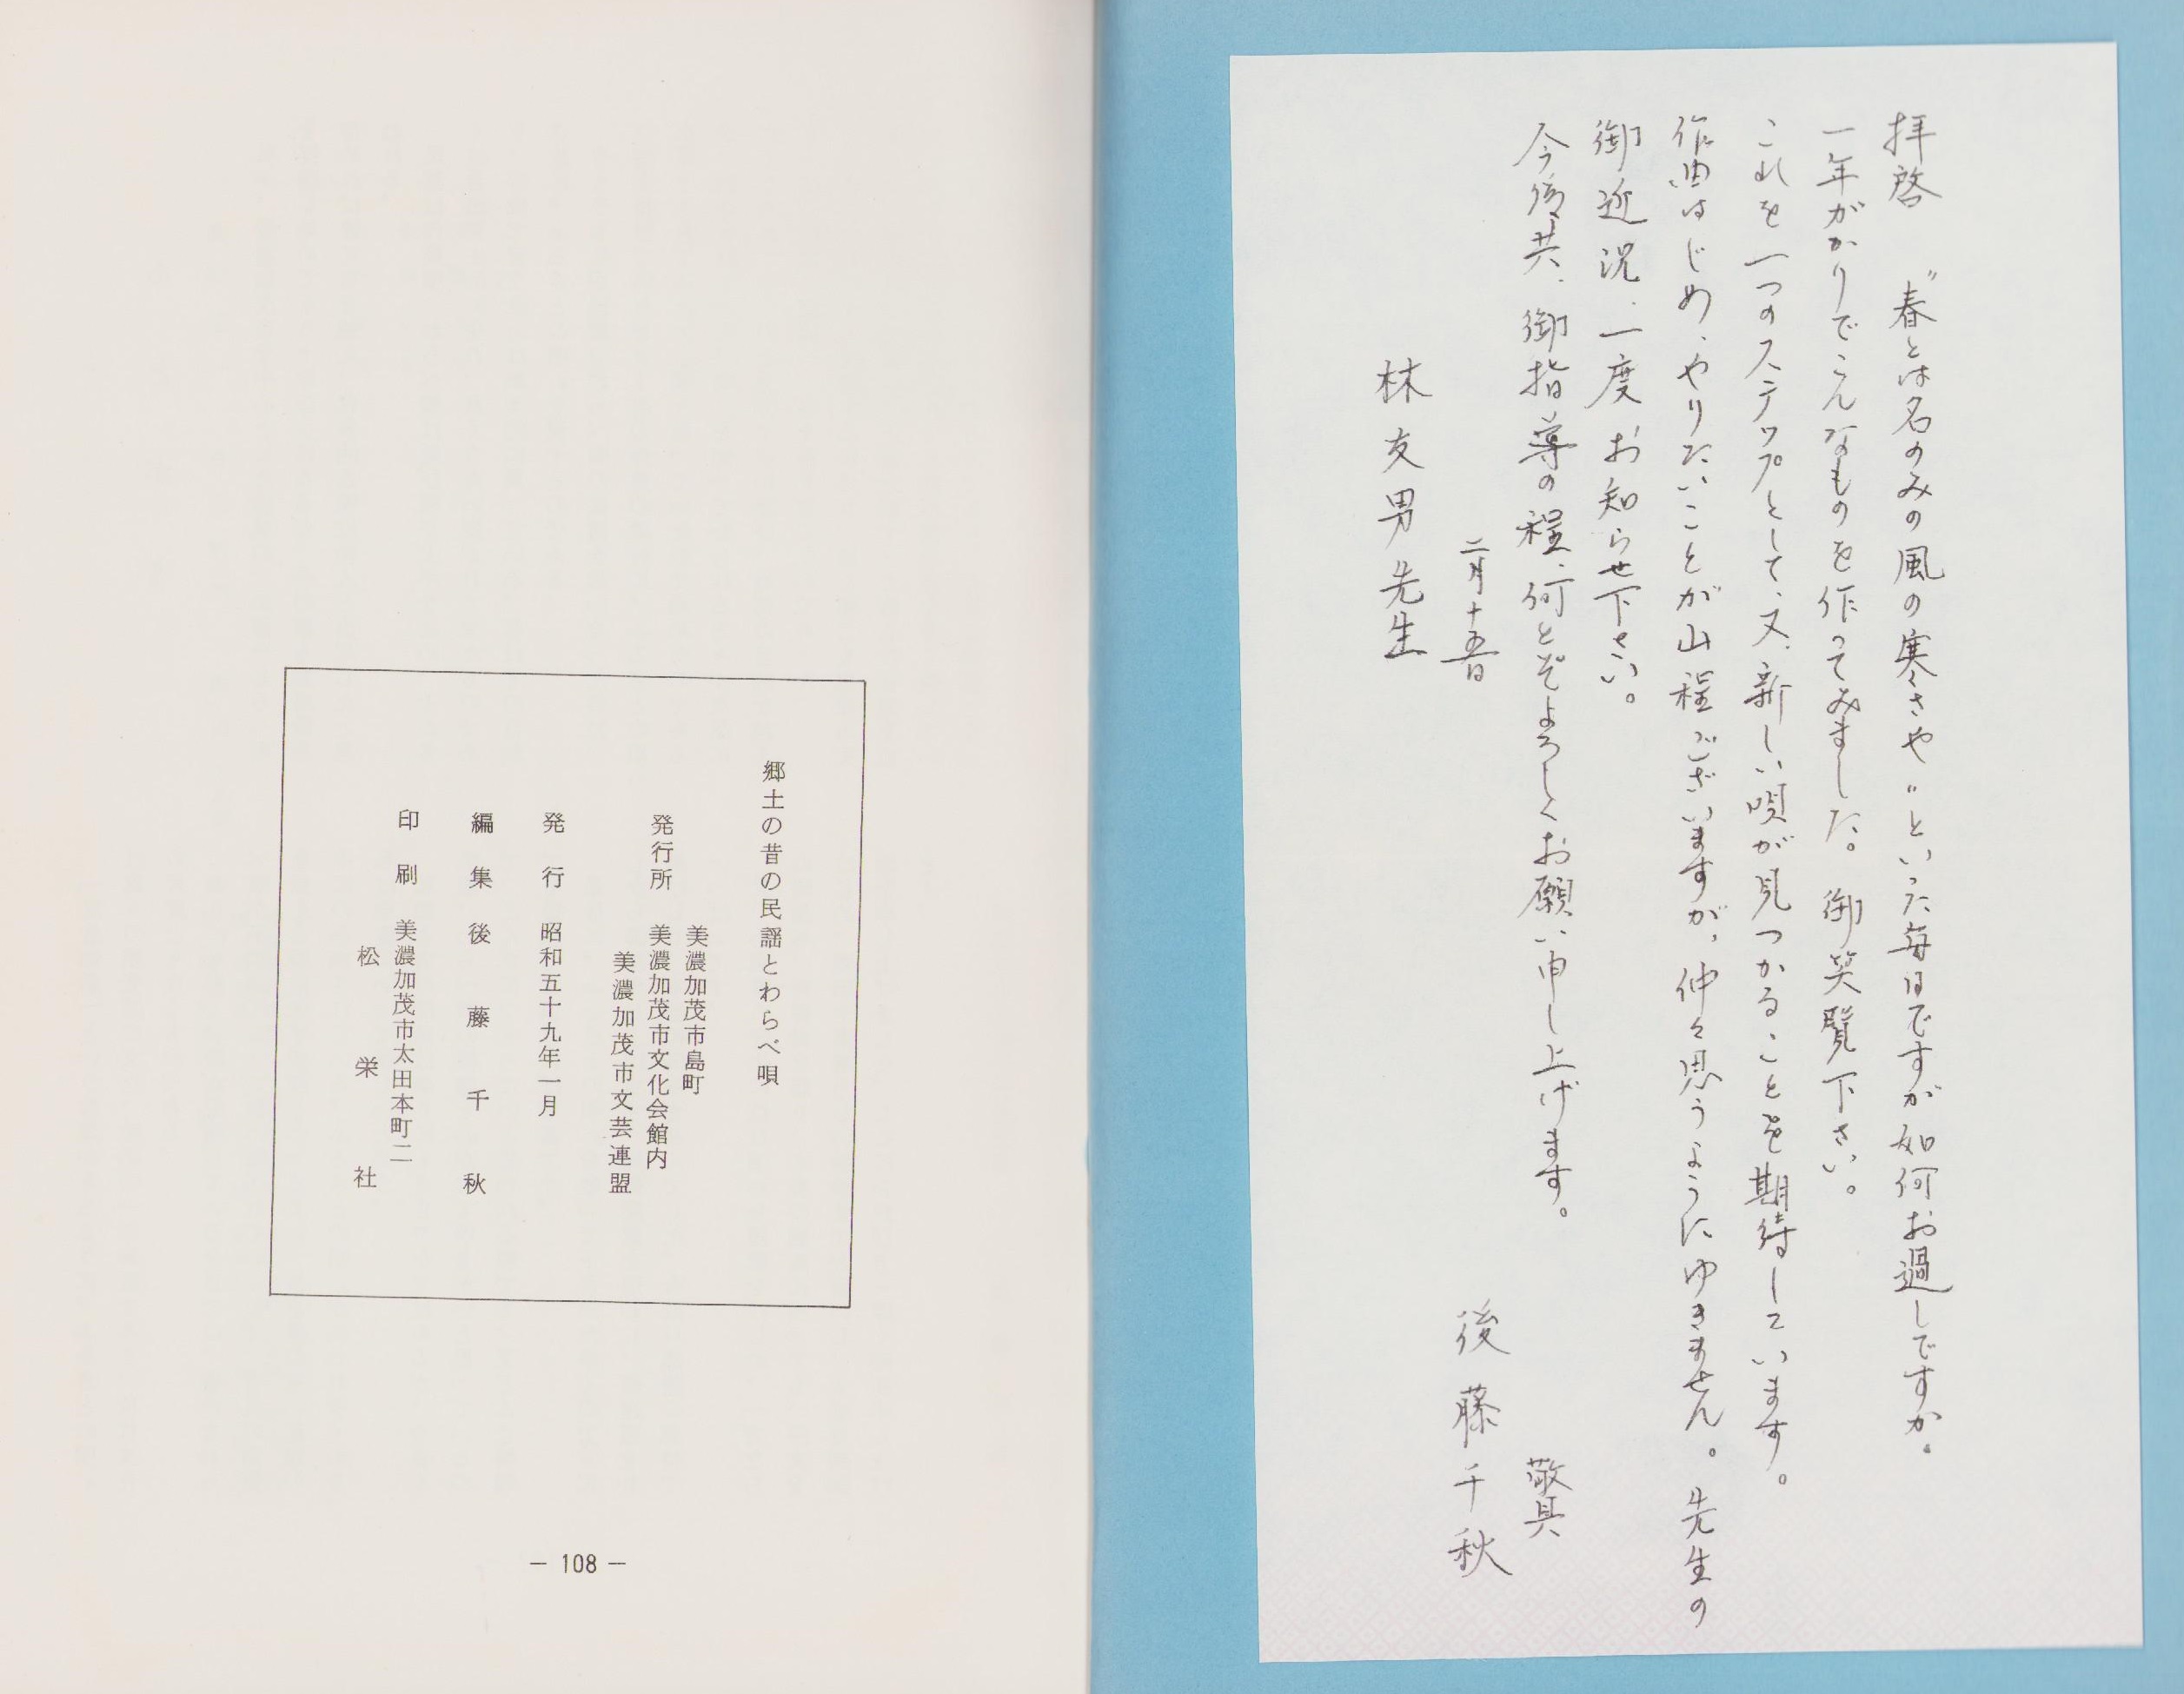 拝啓 〝春とは名のみの風の寒さや〟といった毎日ですが如何お過しですか。
一年がかりでこんなものを作ってみました。御笑覧下さい。
これを一つのステップとして、又、新しい唄が見つかることを期待しています。
作曲はじめ、やりたいことが山程ございますが、仲々思うようにゆきません。先生の
御近況、一度お知らせ下さい。
今後共、御指導の程、何とぞよろしくお願い申し上げます。
敬具
二月十五日
後藤千秋
林友男先生
郷土の昔の民謡とわらべ唄
美濃加茂市島町
発行所 美濃加茂市文化会館内
美濃加茂市文芸連盟
発行 昭和五十九年一月
編集 後藤千秋
印刷 美濃加茂市太田本町二
松栄社
— 108 —